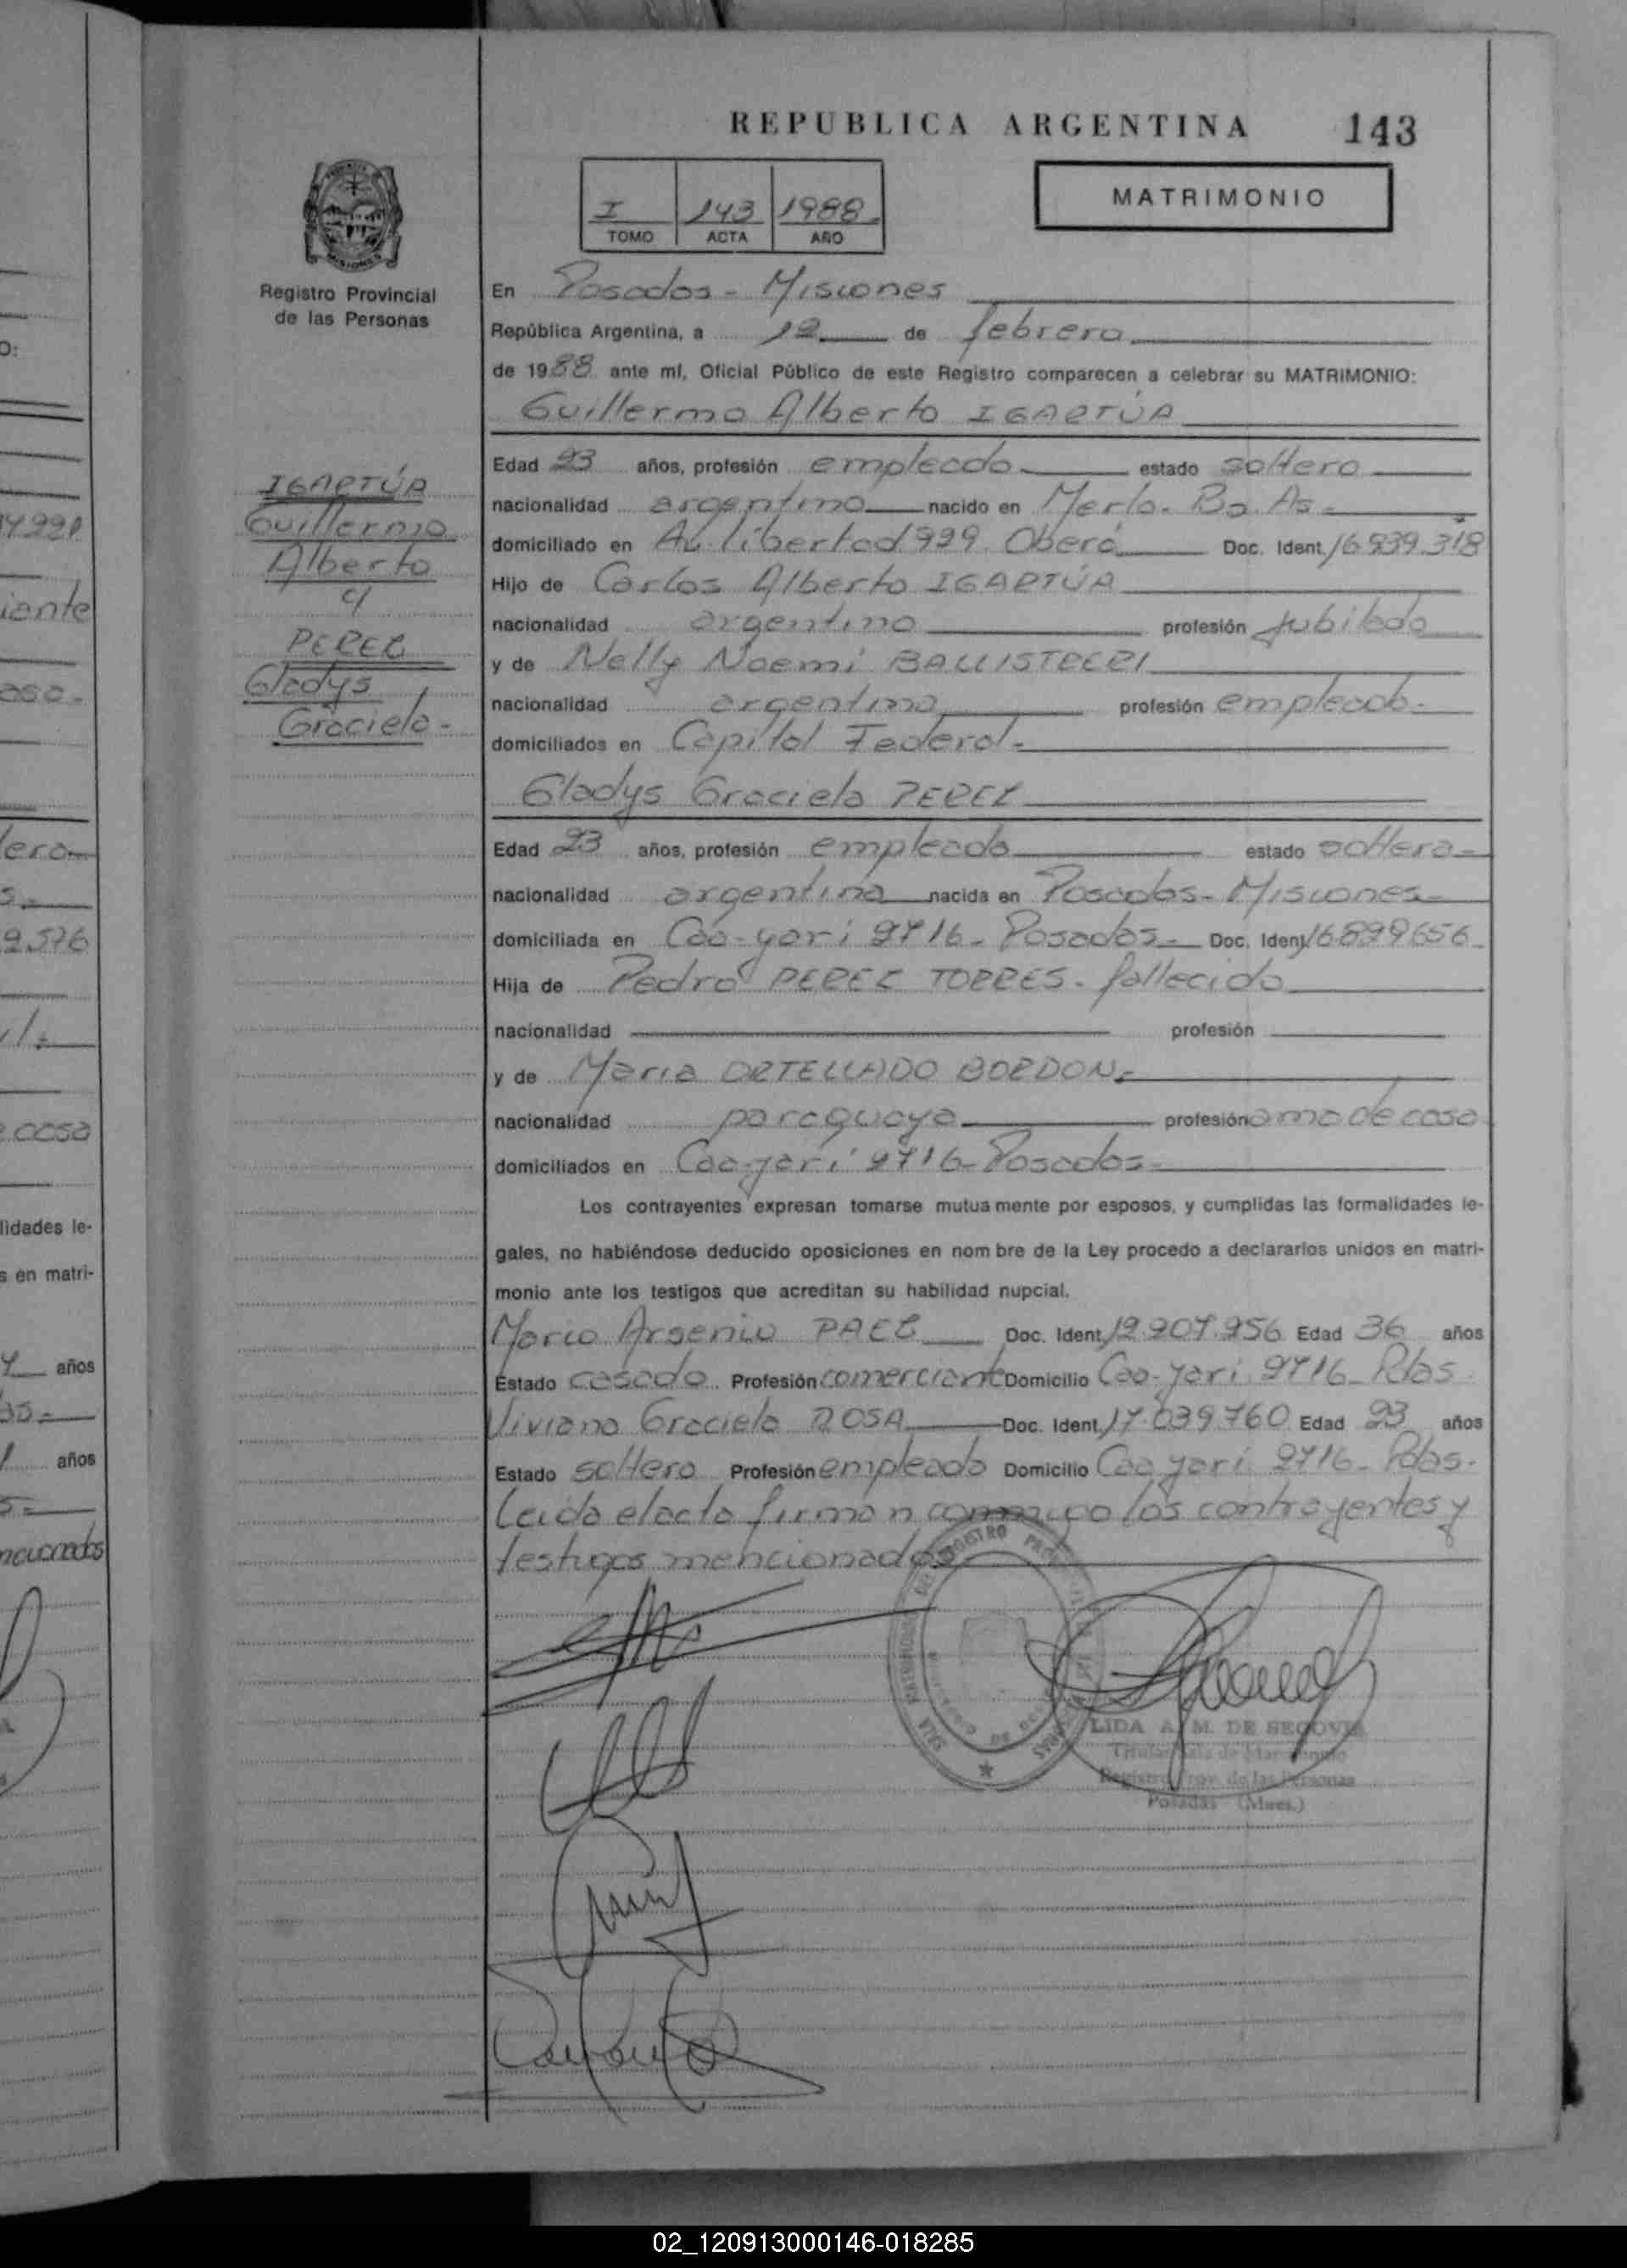 REPUBLICA ARGENTINA 143
MATRIMONIO
I 143 1988
TOMO ACTA AÑO
MISIONES
Registro Provincial
de las Personas
En Posadas - Misiones
República Argentina, a 12 de febrero
de 1988 ante mí, Oficial Público de este Registro comparecen a celebrar su MATRIMONIO:
Guillermo Alberto IGARTÚA
IGARTÚA
Guillermo
Alberto
y
PEREZ
Gladys
Graciela-
Edad 23 años, profesión empleado estado soltero
nacionalidad argentino nacido en Merlo. Bs. As-
domiciliado en Av. libertad 999 Oberá Doc. Ident. 16.939.318
Hijo de Carlos Alberto IGARTÚA
nacionalidad argentino profesión jubilado
y de Nelly Noemi BALLISTRERI
nacionalidad argentina profesión empleada-
domiciliados en Capital Federal-
Gladys Graciela PEREZ
Edad 23 años, profesión empleada estado soltera-
nacionalidad argentina nacida en Posadas- Misiones-
domiciliada en Caa-yari 2716- Posadas- Doc. Ident. 16829656
Hija de Pedro PEREZ TORRES- fallecido
nacionalidad profesión
y de Maria ORTELLADO BORDON-
nacionalidad paraguaya profesión ama de casa
domiciliados en Caa-yari 2716- Posadas-
Los contrayentes expresan tomarse mutuamente por esposos, y cumplidas las formalidades le-
gales, no habiéndose deducido oposiciones en nombre de la Ley procedo a declararlos unidos en matri-
monio ante los testigos que acreditan su habilidad nupcial.
Marco Arsenio PAEZ Doc. Ident. 12.907.956 Edad 36 años
Estado casado Profesión comerciante Domicilio Caa-yari 2716- Pdas.
Viviana Graciela ROSA Doc. Ident. 17.039.760 Edad 23 años
Estado soltera Profesión empleada Domicilio Caa yari 2716- Pdas-
Leida el acta firman conmigo los contrayentes y
testigos mencionados
LIDA A. M. DE SEGOVIA
Titular Sala de Matrimonio
Registro Prov. de las Personas
Posadas (Mnes.)
lidades le-
s en matri-
años
años
02_120913000146-018285